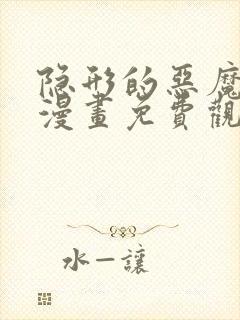 隐形的惡魔
漫畫免費觀
水一讓